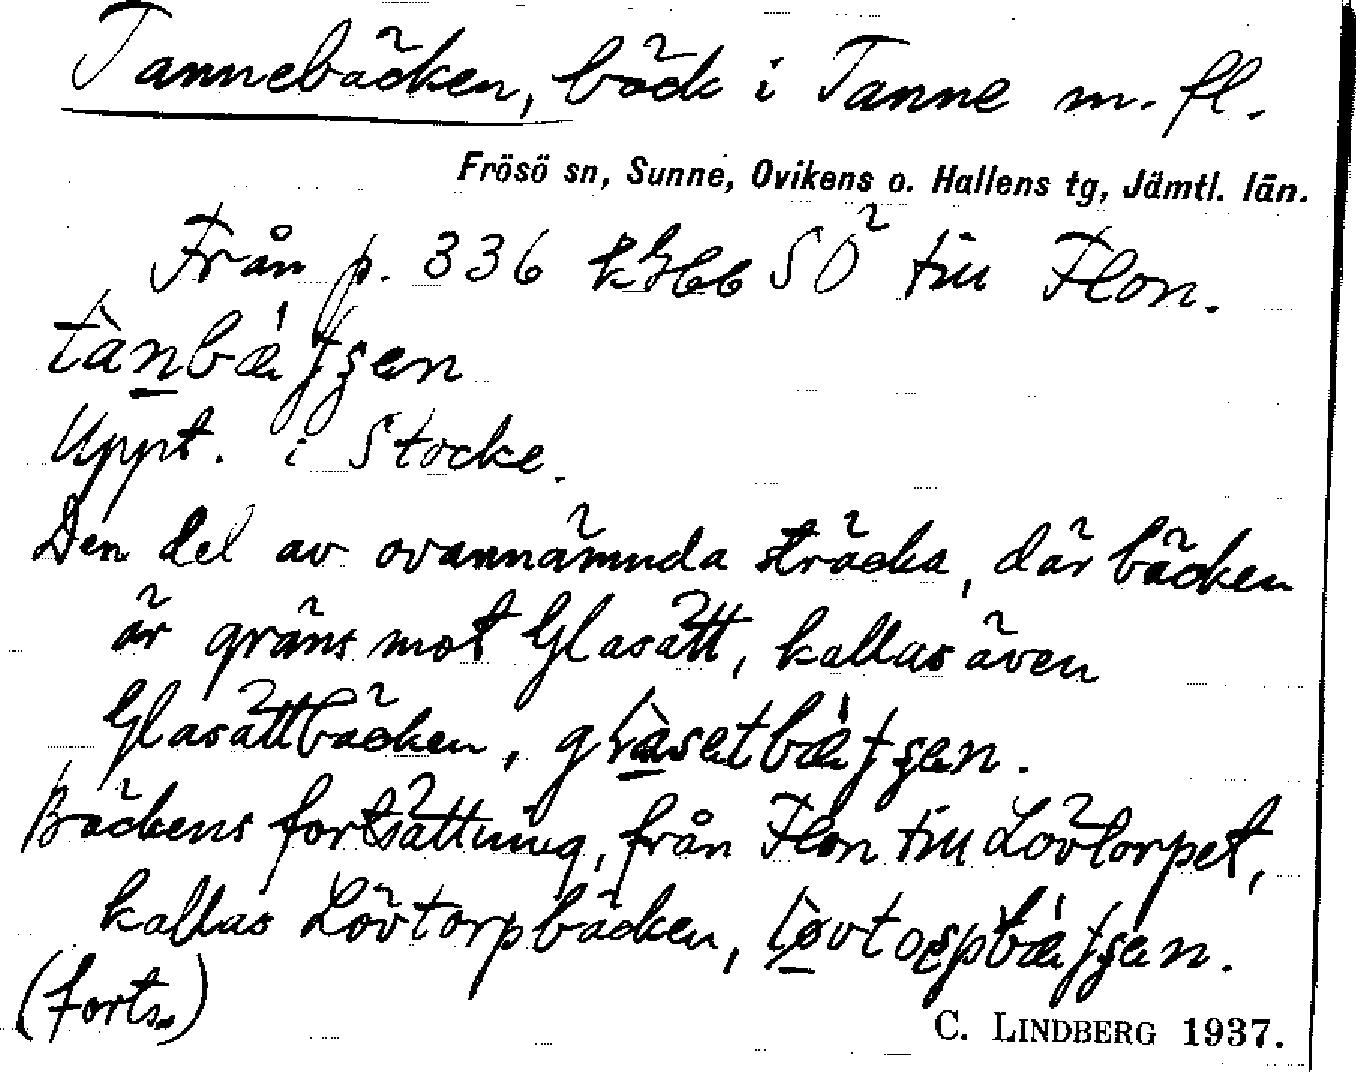 Tannebäcken, bäck i Tanne m. fl.
Frösö sn, Sunne, Ovikens o. Hallens tg, Jämtl. län.
Från p. 336 k3bb SÖ till Flon.
tànbǽtʃen
Uppt. i Stocke.
Den del av ovannämnda sträcka, där bäcken
är gräns mot Glasätt, kallas även
Glasättbäcken,
Bäckens fortsättning, från Flon till Lövtorpet,
kallas Lövtorpbäcken,
(forts.)
C. LINDBERG 1937.